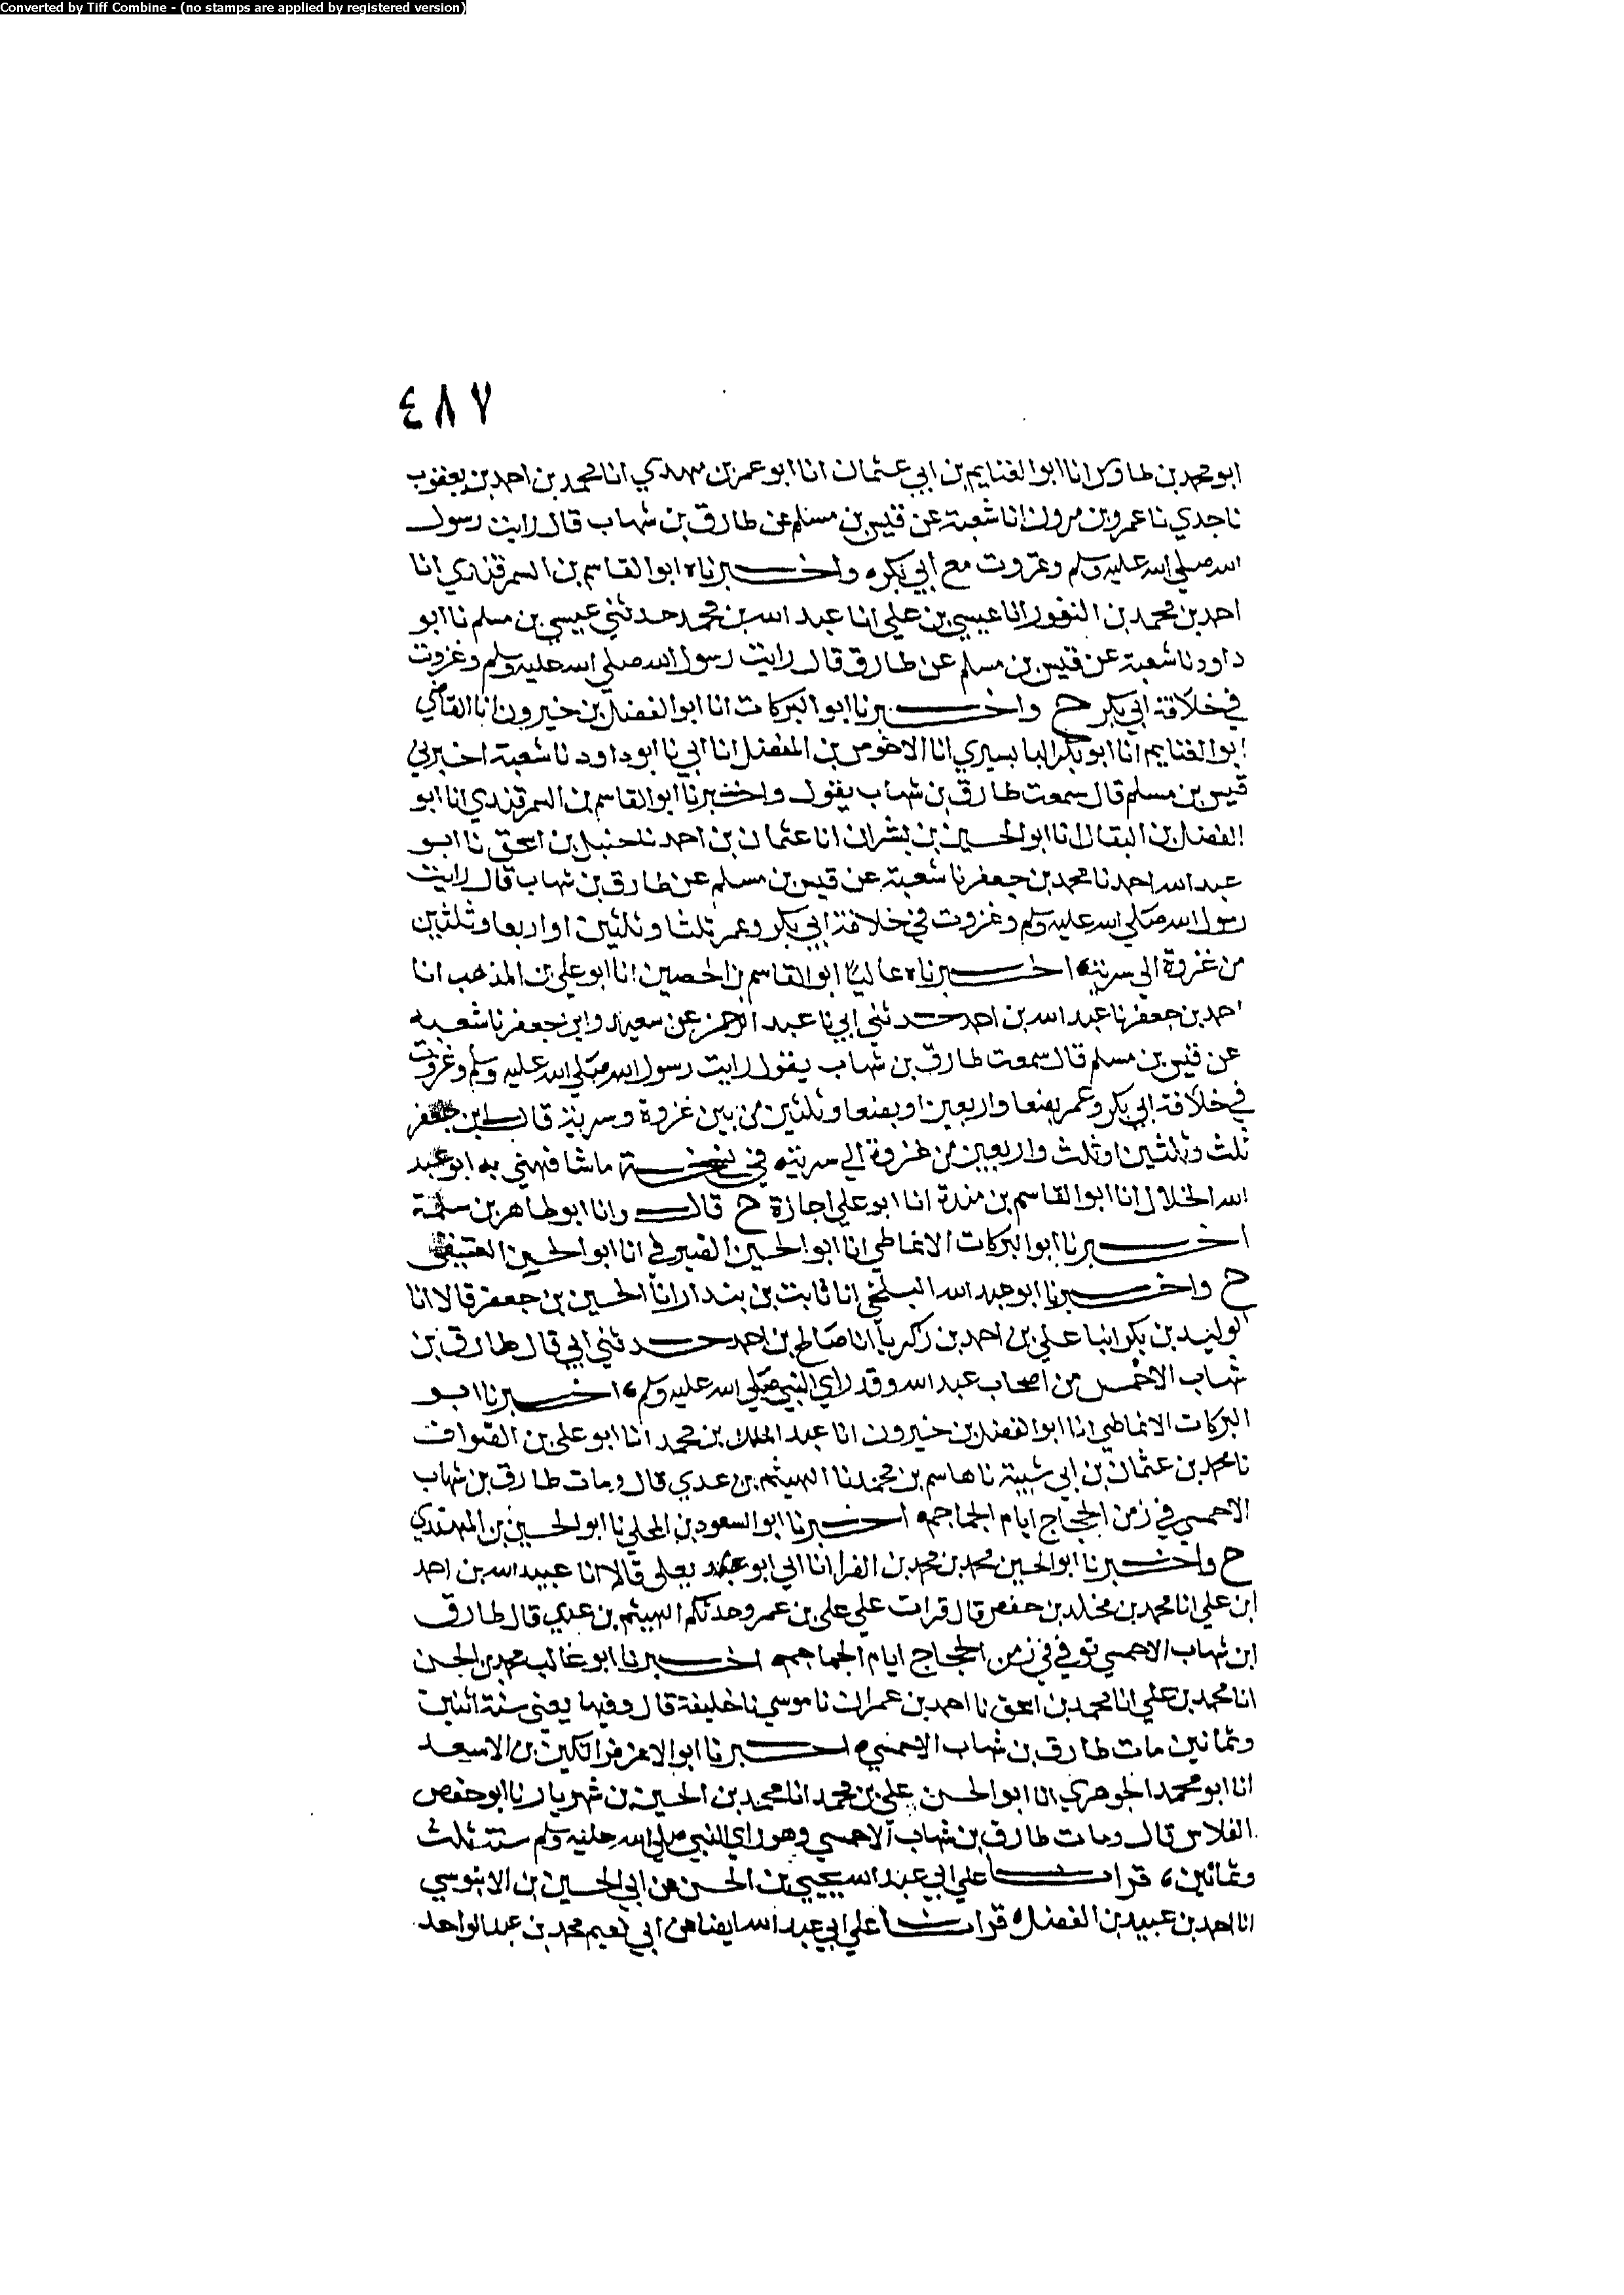 Converted by Tiff Combine - (no stamps are applied by registered version)
٤٨٧
ابو محمد بن طاوس انا ابو الغنايم بن ابي عثمان انا ابو عمر بن مهدي انا محمد بن احمد بن يعقوب
نا جدي نا عمرو بن مرون انا شعبة عن قيس بن مسلم عن طارق بن شهاب قال رايت رسول
الله صلى الله عليه وسلم وغزوت مع ابي بكر ه واخبرناه ابو القاسم بن السمرقندي انا
احمد بن محمد بن النقور انا عيسى بن علي انا عبد الله بن محمد حدثني عيسى بن مسلم نا ابو
داود نا شعبة عن قيس بن مسلم عن طارق قال رايت رسول الله صلى الله عليه وسلم وغزوت
في خلافة ابي بكر ح واخبرنا ابو البركات انا ابو الفضل بن خيرون انا القاضي
ابو الغنايم انا ابو بكر البابسيري انا الاخوص بن المفضل انا ابي نا ابو داود نا شعبة اخبرني
قيس بن مسلم قال سمعت طارق بن شهاب يقول واخبرنا ابو القاسم بن السمرقندي انا ابو
الفضل بن البقال انا ابو الحسين بن بشران انا عثمان بن احمد نا حنبل بن اسحق نا ابو
عبد الله احمد نا محمد بن جعفر نا شعبة عن قيس بن مسلم عن طارق بن شهاب قال رايت
رسول الله صلى الله عليه وسلم وغزوت في خلافة ابي بكر وعمر ثلثا وثلثين او اربعا وثلثين
من غزوة الي سرية ه اخبرناه عاليا ابو القاسم بن الحصين انا ابو علي بن المذهب انا
احمد بن جعفر نا عبد الله بن احمد حدثني ابي نا عبد الرحمن عن سعيد وابن جعفر نا شعبه
عن قيس بن مسلم قال سمعت طارق بن شهاب يقول رايت رسول الله صلى الله عليه وسلم وغزوت
في خلافة ابي بكر وعمر بضعا واربعين او بضعا وثلثين من بين غزوة وسرية قال ابن جعفر
ثلث وثلثين او ثلث واربعين من غزوة الي سرية ه في نسخة ما شافهني به ابو عبد
الله الخلال انا ابو القاسم بن مندة انا ابو علي اجازة ح قال وانا ابو طاهر بن سلمة
اخبرنا ابو البركات الانماطي انا ابو الحسين الصيرفي انا ابو الحسين العتيقي
ح واخبرنا ابو عبد الله البلخي انا ثابت بن بندار انا الحسين بن جعفر قالا انا
الوليد بن بكر انبا علي بن احمد بن زكريا انا صالح بن احمد حدثني ابي قال طارق بن
شهاب الاحمس من اصحاب عبد الله وقد راي النبي صلى الله عليه وسلم ه اخبرنا ابو
البركات الانماطي انا ابو الفضل بن خيرون انا عبد الملك بن محمد انا ابو علي بن الصواف
نا محمد بن عثمان بن ابي شيبة نا هاسم بن محمد نا الهيثم بن عدي قال ومات طارق بن شهاب
الاحمسي في زمن الحجاج ايام الجماجم ه اخبرنا ابو السعود بن المجلي نا ابو الحسين بن المهتدي
ح واخبرنا ابو الحسين محمد بن محمد بن الفرا انا ابي ابو يعلى قالا انا عبيد الله بن احمد
ابن علي انا محمد بن مخلد بن حفص قال قرات علي علي بن عمرو حدثكم الهيثم بن عدي قال طارق
ابن شهاب الاحمسي توفي في زمن الحجاج ايام الجماجم ه اخبرنا ابو غالب محمد بن الحسن
انا محمد بن علي انا محمد بن اسحق نا احمد بن عمران نا موسي نا خليفة قال وفيها يعني سنة اثنين
وثمانين مات طارق بن شهاب الاحمسي ه اخبرنا ابو الاعز قراتكين بن الاسعد
انا ابو محمد الجوهري انا ابو الحسن علي بن محمد انا محمد بن الحسين بن شهريار نا ابو حفص
الفلاس قال ومات طارق بن شهاب الاحمسي وهو راي النبي صلى الله عليه وسلم سنة ثلث
وثمانين ه قرات علي ابي عبد الله يحيي بن الحسن عن ابي الحسين بن الابنوسي
انا احمد بن عبيد بن الفضل ه قرات علي ابي عبد الله ايضا عن ابي نعيم محمد بن عبد الواحد